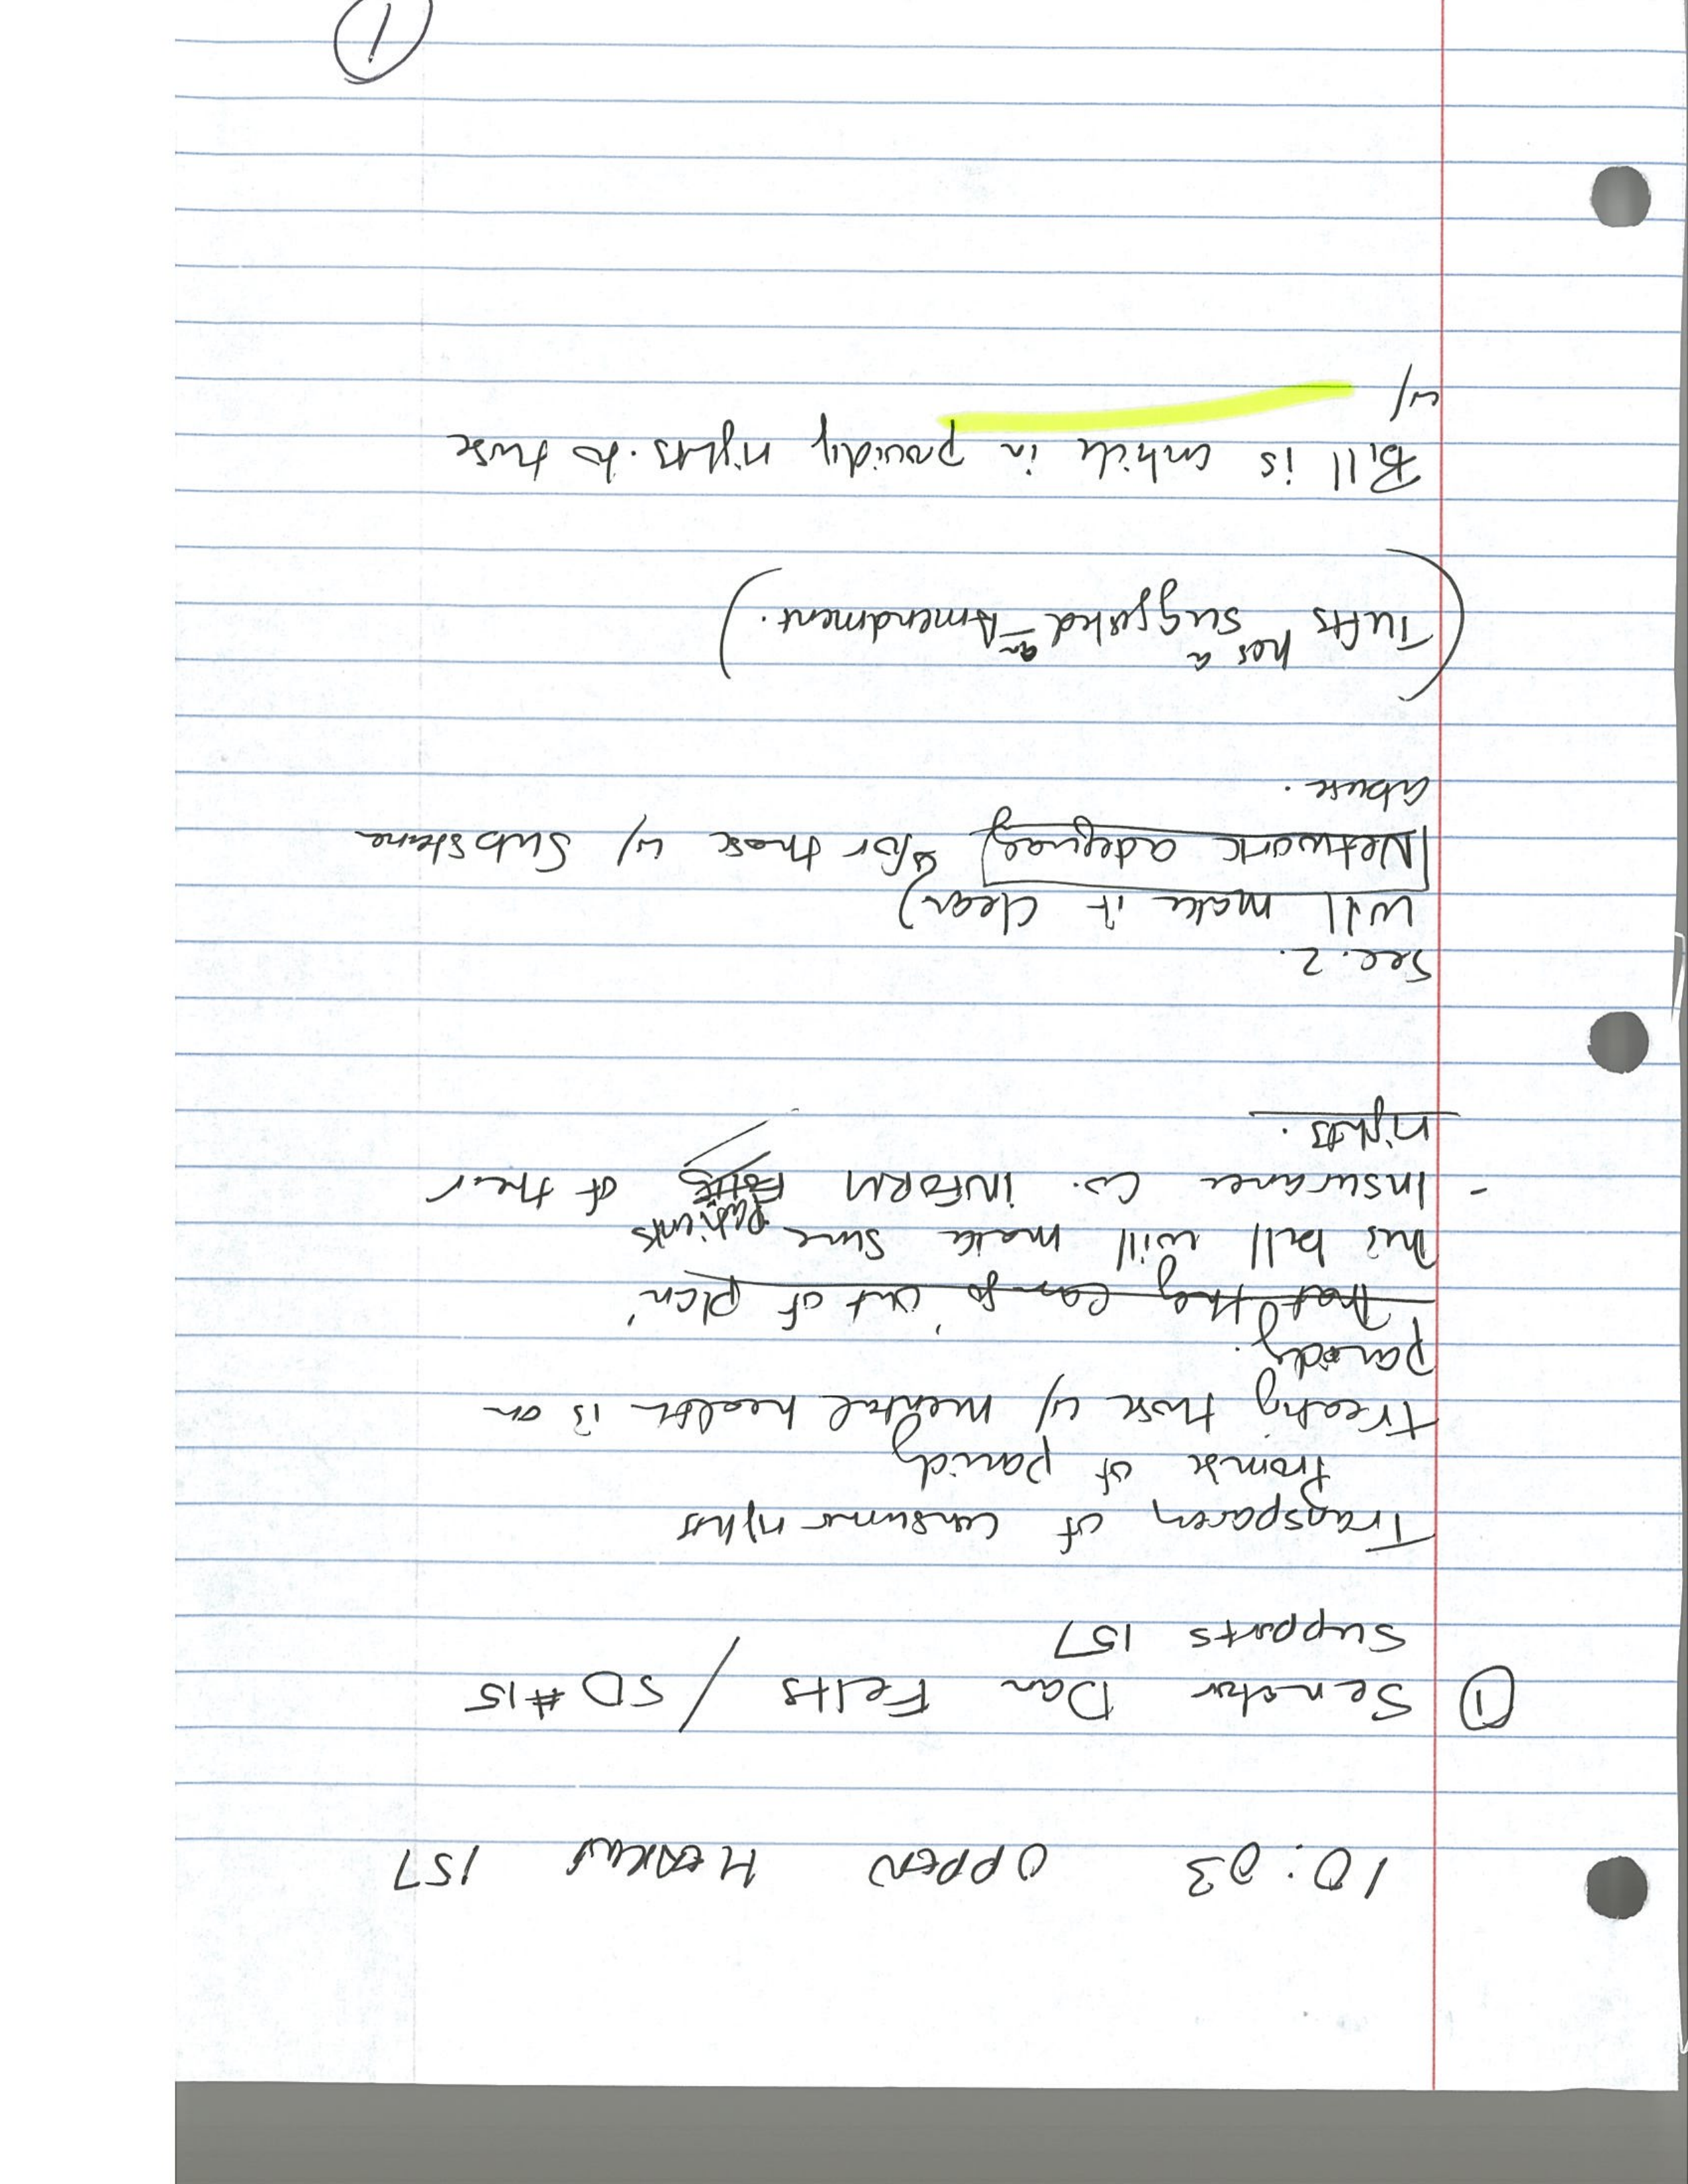 10:03 OPPEN HEARING 157
① Senator Dan Felts / SD #15
Supports 157
Transparency of consumer rights
Promise of parity
treating those w/ mental health is on
parody.
that they can go 'out of plan'
This bill will make sure patients
- Insurance Co. INFORM Folks of their
rights.
Sec. 2.
Will make it clear)
Network adequacy for those w/ Substane
abuse.
(Tufts has a suggested an Amendment.)
Bill is in providing rights to those
w/
1